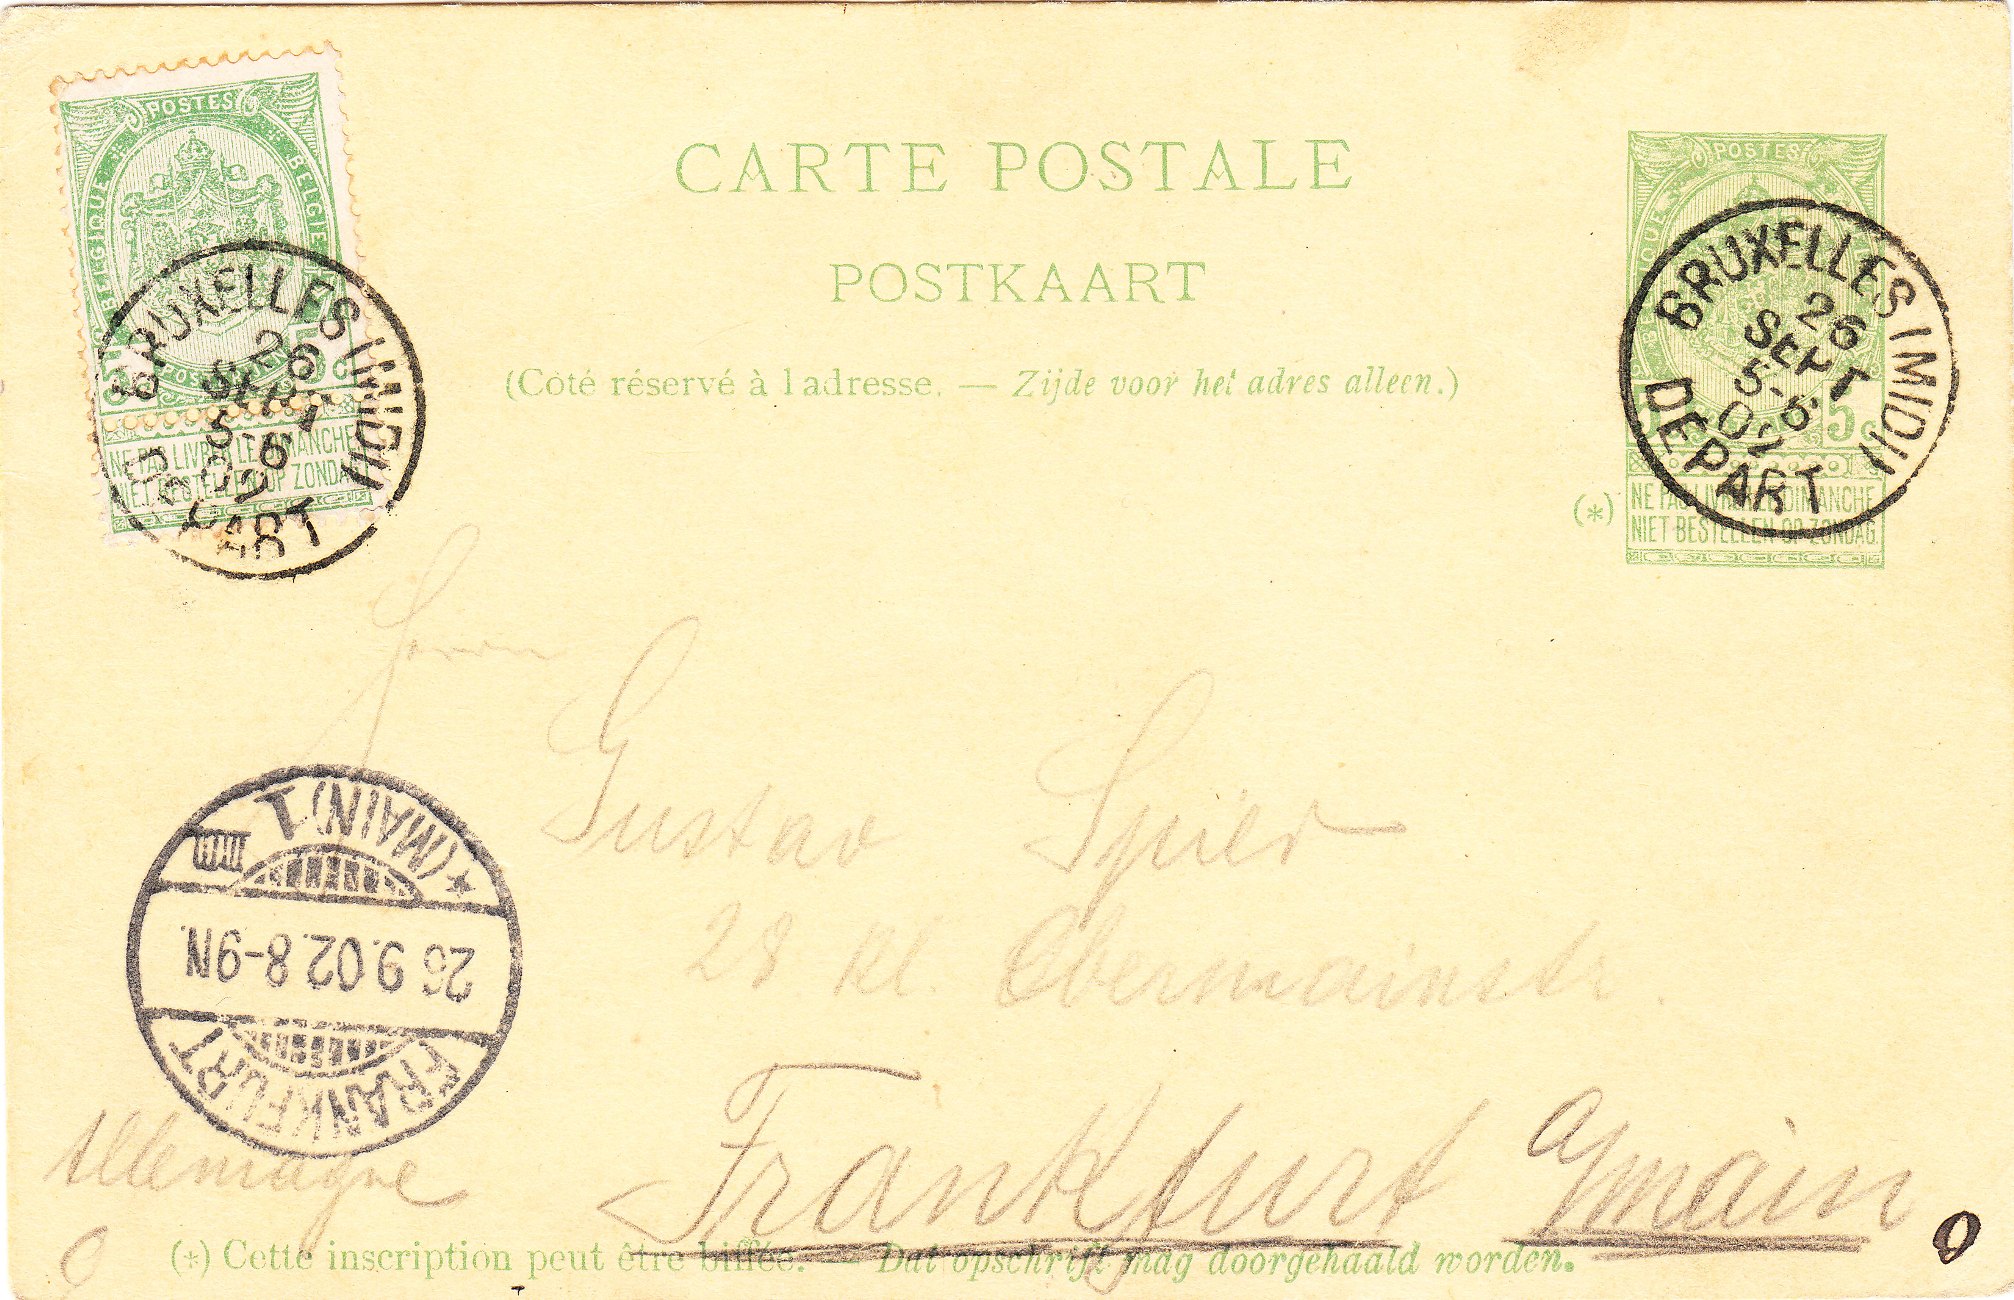 POSTES
BELGIQUE
BELGIE
5 5c
POSTERIJEN
NE PAS LIVRER LE DIMANCHE
NIET BESTELLEN OP ZONDAG
BRUXELLES (MIDI)
26
SEPT
5-6
02
DEPART
CARTE POSTALE
POSTKAART
(Côté réservé à l'adresse. — Zijde voor het adres alleen.)
POSTES
BRUXELLES (MIDI)
26
SEPT
5-6
02
DEPART
5 5c
(*)
NE PAS LIVRER LE DIMANCHE
NIET BESTELLEN OP ZONDAG.
Herrn
Gustav Spier
28 Kl. Obermainstr.
Frankfurt a/main
Allemagne
FRANKFURT
26.9.02.8-9N.
* (MAIN) 1
(*) Cette inscription peut être biffée. — Dat opschrift mag doorgehaald worden.